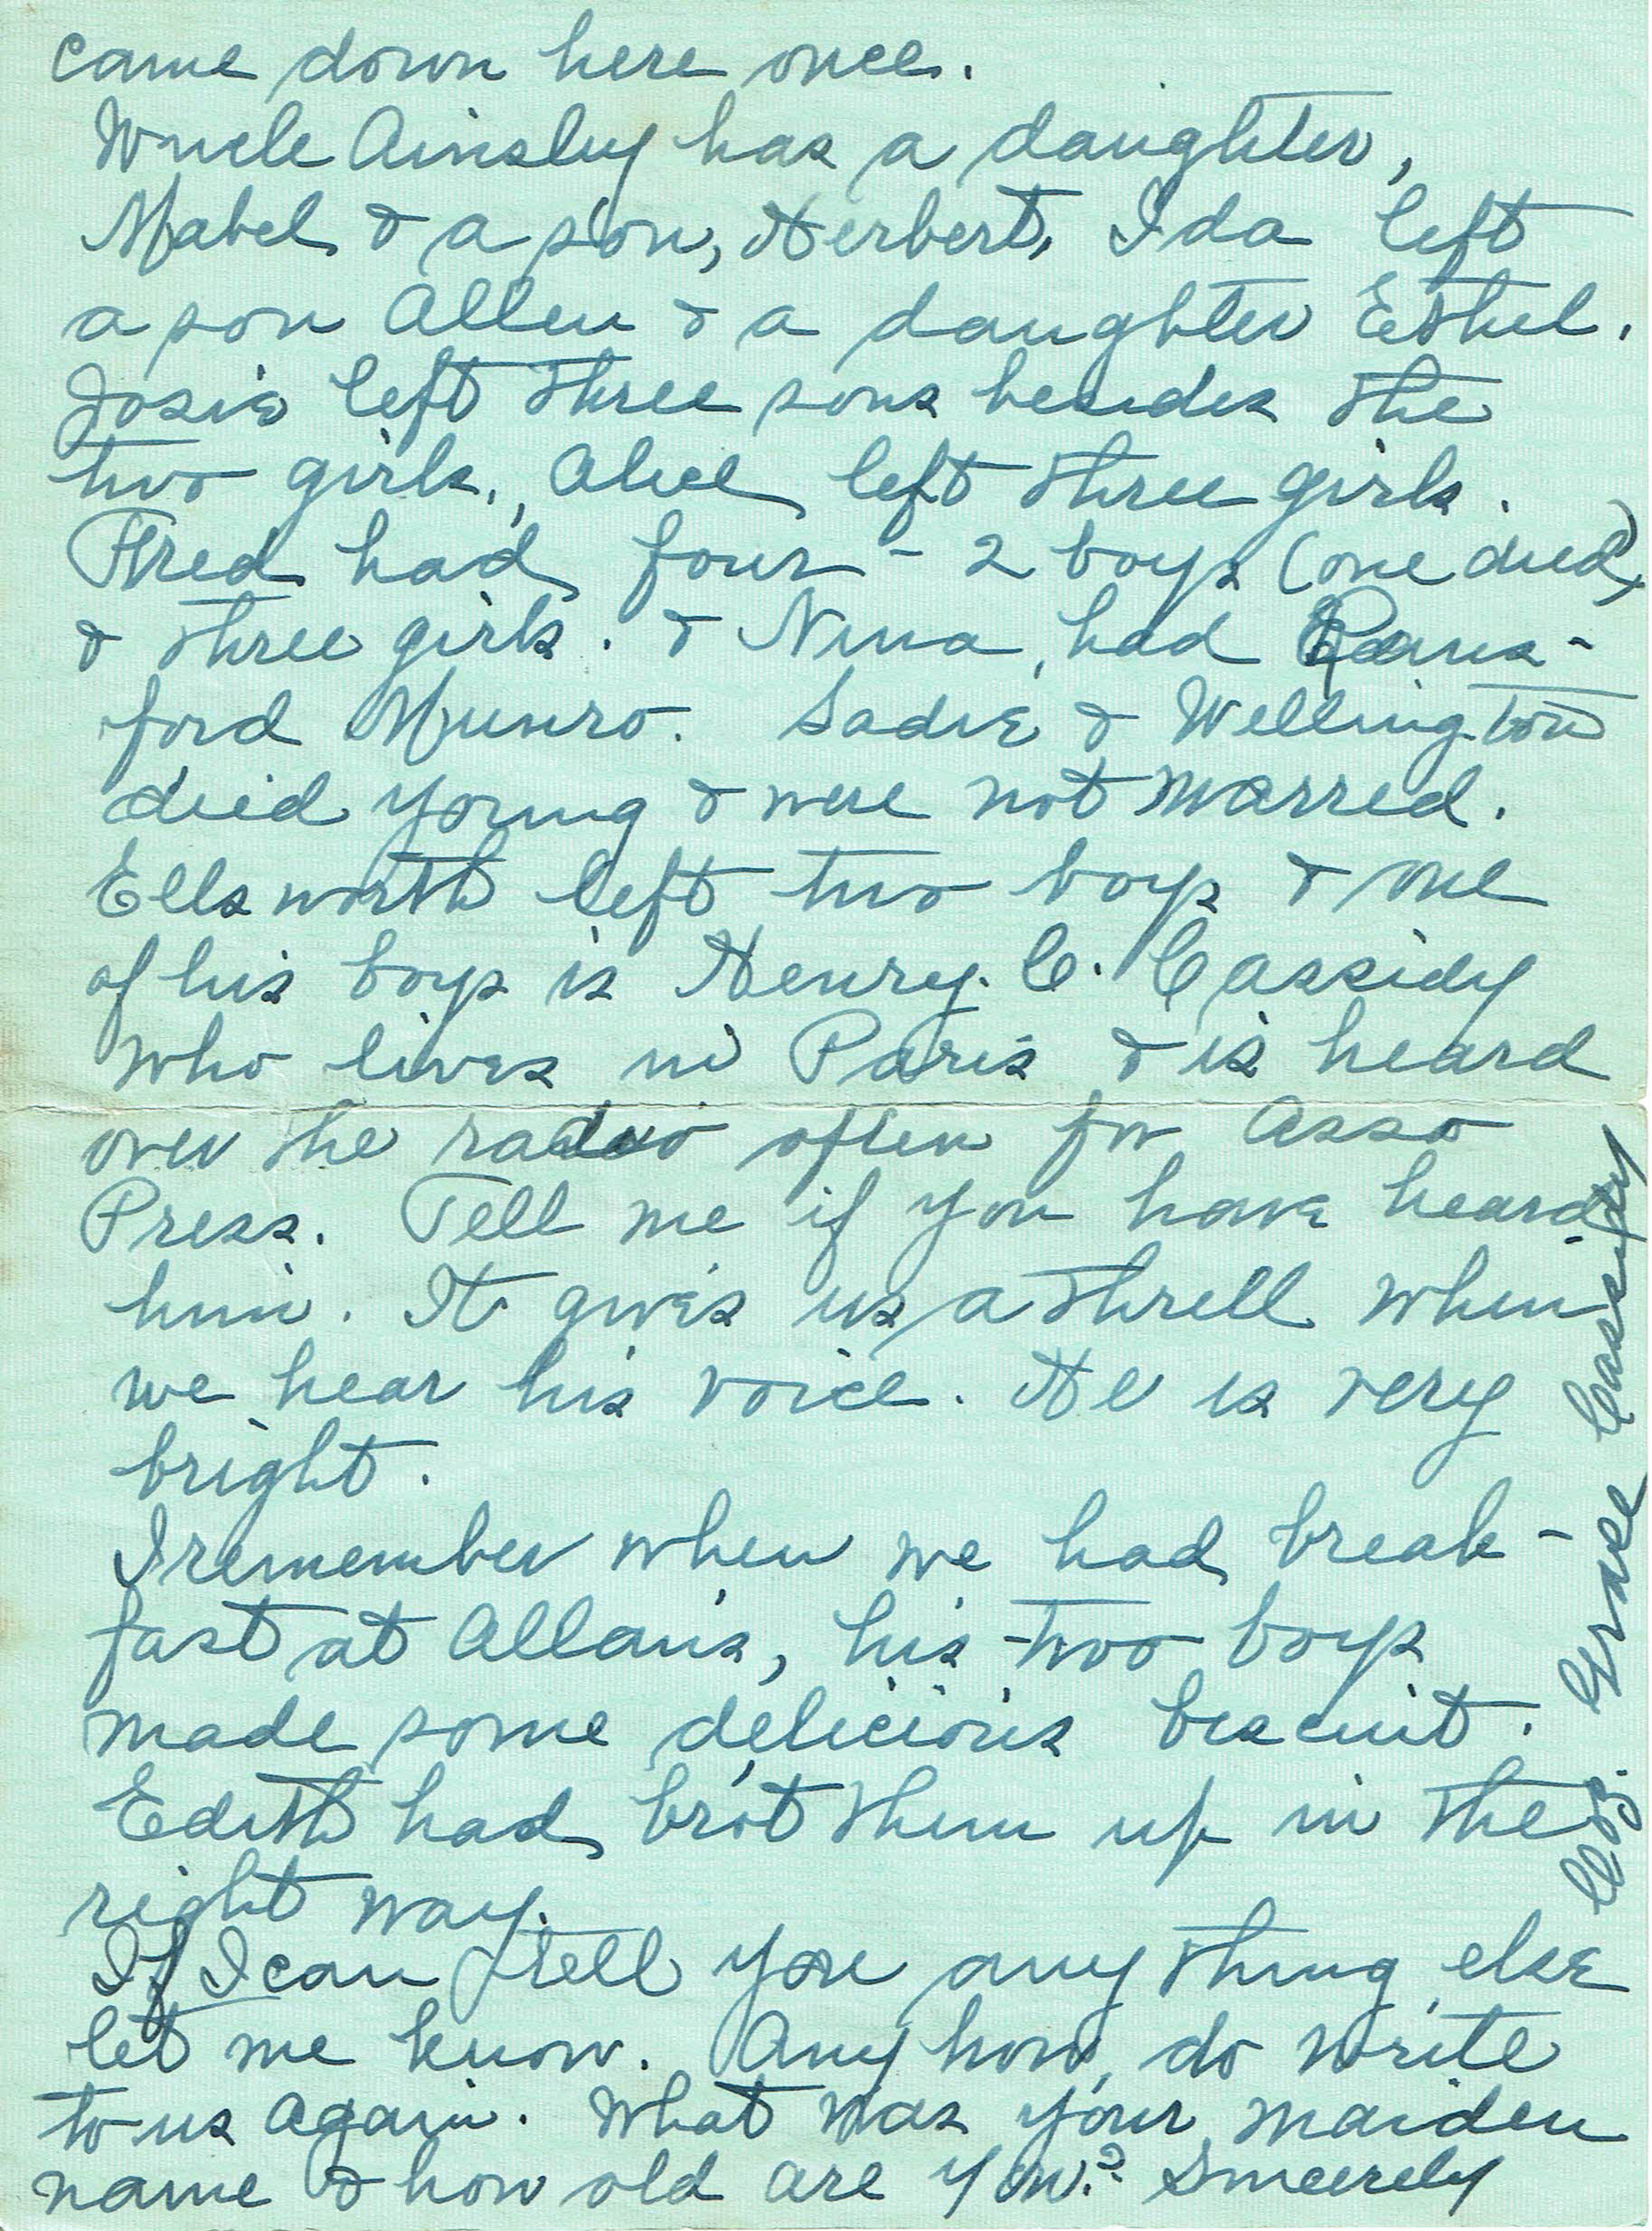 came down here once.
Uncle Ainsley has a daughter,
Mabel & a son, Herbert, Ida left
a son Allen & a daughter Ethel.
Josie left three sons besides the
two girls., Alice left three girls.
Fred had four - 2 boys (one died)
& three girls. & Nina had Rans-
ford Munro. Sadie & Wellington
died young & were not married.
Ellsworth left two boys & one
of his boys is Henry. C. Cassidy
who lives in Paris & is heard
over the radio often for Asso
Press. Tell me if you have heard
him. It gives us a thrill when
we hear his voice. He is very
bright.
I remember when we had break-
fast at Allan's, his two boys
made some delicious biscuit.
Edith had brot them up in the
right way.
If I can tell you any thing else
let me know. Any how do write
to us again. What was your maiden
name & how old are you? Sincerely
Grace Cassidy